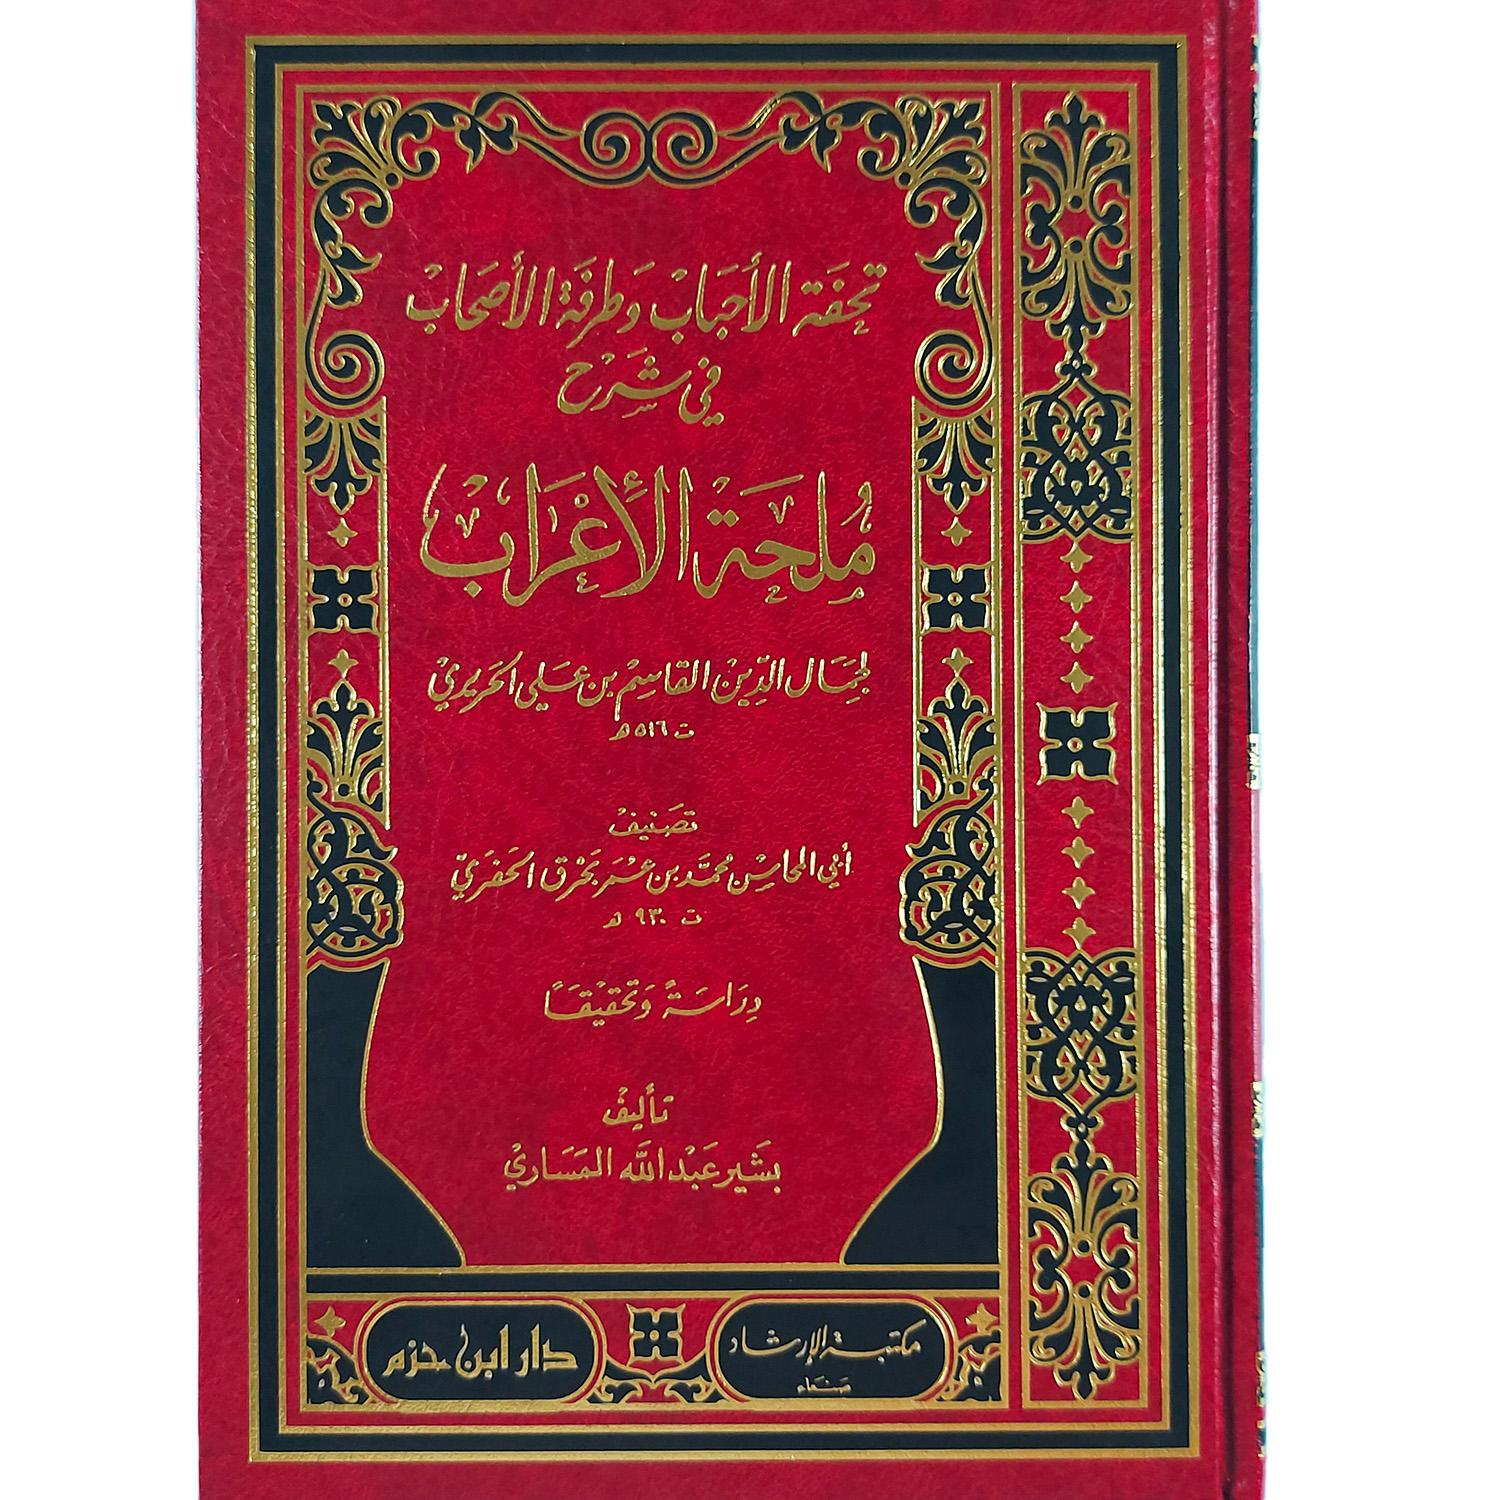 تحفة الأحَبَابْ وَطرفَة الأصَحَابْ
في شَرْح
مُلحَة الإعْرَابْ
لجمَال الدِّينْ القاسِمْ بن عَلي الحَريريْ
ت ٥١٦ هـ
تصَنيفْ
أبي المحاسِنْ محمَّد بن عُمَر بَحْرَق الحَضَريّ
ت ٩٣٠ هـ
دِرَاسَةً وَتحَقيْقَاً
تأليفْ
بَشير عَبْد الله المَسَاريْ
مكتبة الإرشاد
صنعاء
دار ابن حزم